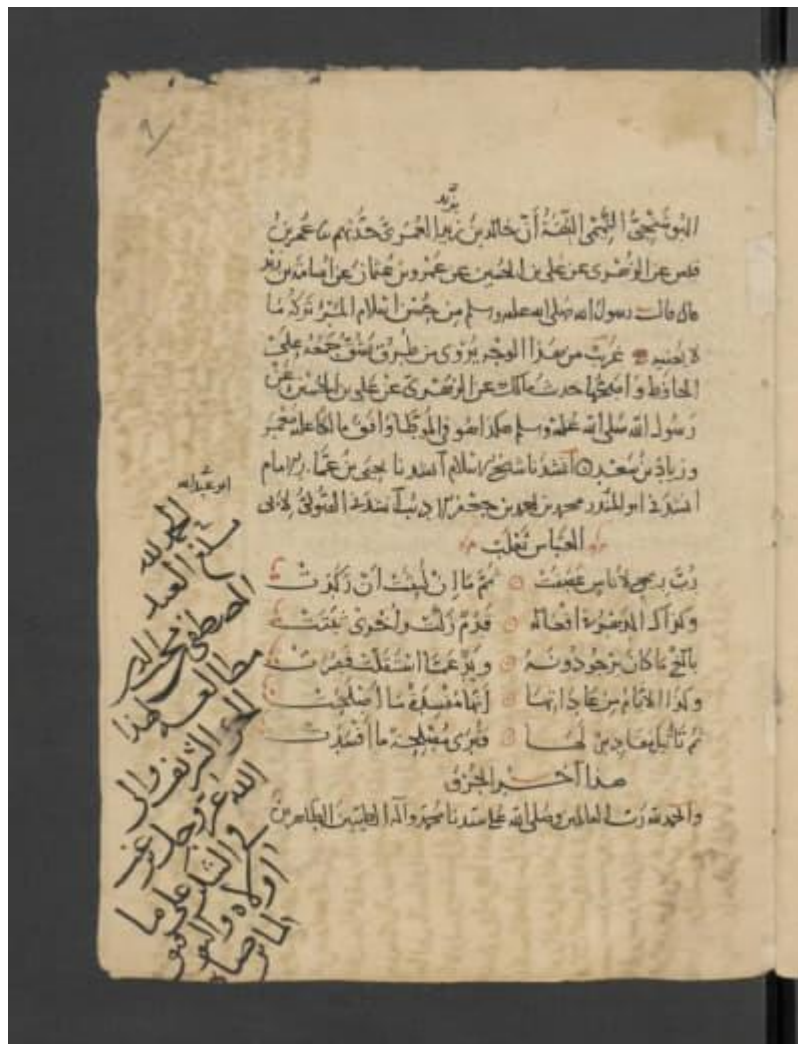 ٩
يزيد
البوشنجي التميمي الثقة أن خالد بن يزيد العمري حدثهم عمر بن
قيس عن الزهري عن علي بن الحسين عن عمرو بن عثمان عن اسامة بن زيد
قال قال رسول الله صلى الله عليه وسلم من حسن اسلام المرء تركه ما
لا يعنيه غريب من هذا الوجه يروى من طرق
الحافظ وأصحها حديث مالك عن الزهري عن علي بن الحسين عن
رسول الله صلى الله عليه وسلم هكذا هو في الموطا وافق مالكا عليه معمر
وزياد بن سعد أنشدنا شيخ الاسلام أنشدنا يحيى بن عمار الامام
ابو عبدالله
انشدني ابو المنذر محمد بن احمد بن جعفر الاديب أنشدني لابي
العباس ثعلب
رب ريح لأناس عصفت ثم ما إن لبثت أن ركدت
وكذاك الدهر في افعاله قدم زلت واخرى ثبتت
بالغ ما كان يرجو دونه ويد عما استقلت قصرت
وكذا الايام من عاداتها أنها مفسدة ما أصلحت
ثم تأتيك مقادير لها فترى مصلحة ما افسدت
هذا آخر الجزؤ
والحمد لله رب العالمين وصلى الله على سيدنا محمد وآله الطيبين الطاهرين
الحمد لله
بلغ العبد
المصطفى محب الدين
مطالعه هذا
الجزء الشريف والى
الله عز وجل
على ما
اولاه